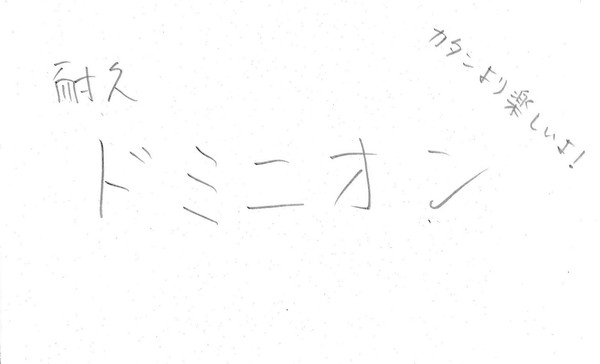 耐久
ドミニオン
カタンより楽しいよ!